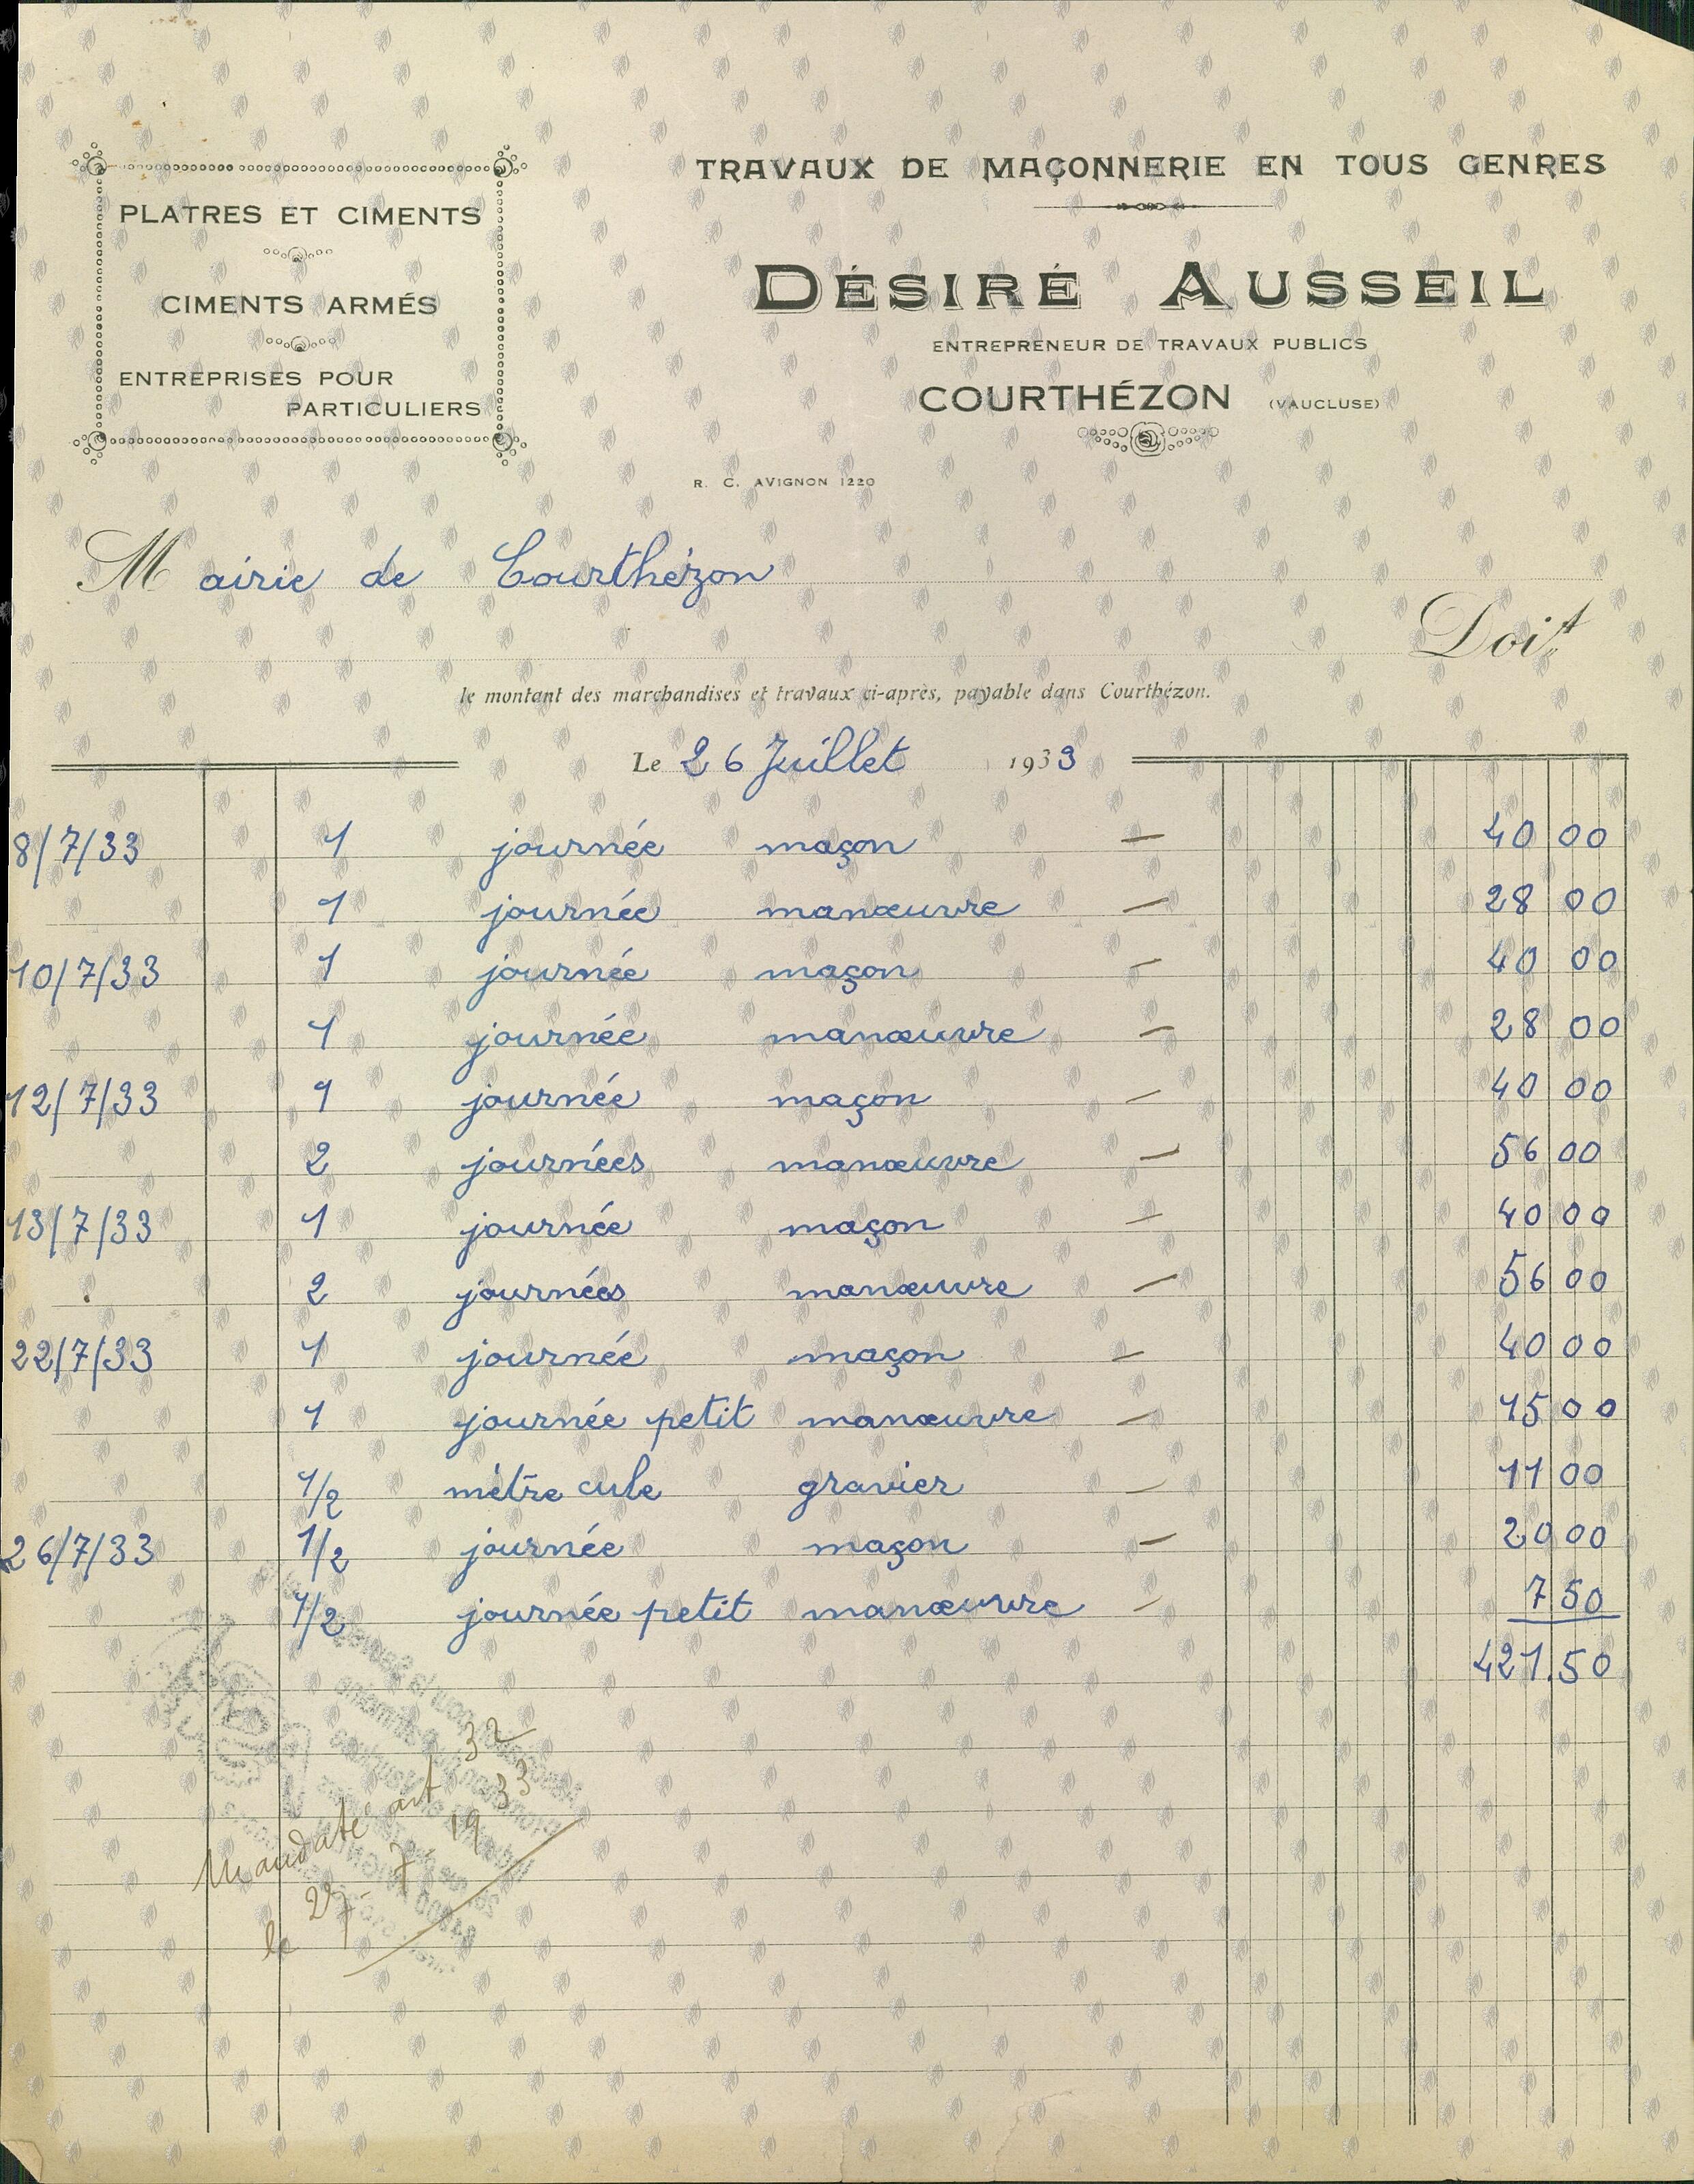 PLATRES ET CIMENTS
CIMENTS ARMÉS
ENTREPRISES POUR
PARTICULIERS
TRAVAUX DE MAÇONNERIE EN TOUS GENRES
DÉSIRÉ AUSSEIL
ENTREPRENEUR DE TRAVAUX PUBLICS
COURTHÉZON (VAUCLUSE)
R. C. AVIGNON 1220
Mairie de Courthézon
Doit
le montant des marchandises et travaux ci-après, payable dans Courthézon.
Le 26 Juillet 1933
8/7/33 1 journée maçon — 40 00
1 journée manœuvre — 28 00
10/7/33 1 journée maçon — 40 00
1 journée manœuvre — 28 00
12/7/33 1 journée maçon — 40 00
2 journées manœuvre — 56 00
13/7/33 1 journée maçon — 40 00
2 journées manœuvre — 56 00
22/7/33 1 journée maçon — 40 00
1 journée petit manœuvre — 15 00
1/2 mètre cube gravier — 11 00
26/7/33 1/2 journée maçon — 20 00
1/2 journée petit manœuvre — 7 50
421.50
Mandaté art 32
le 27 - 7 - 1933